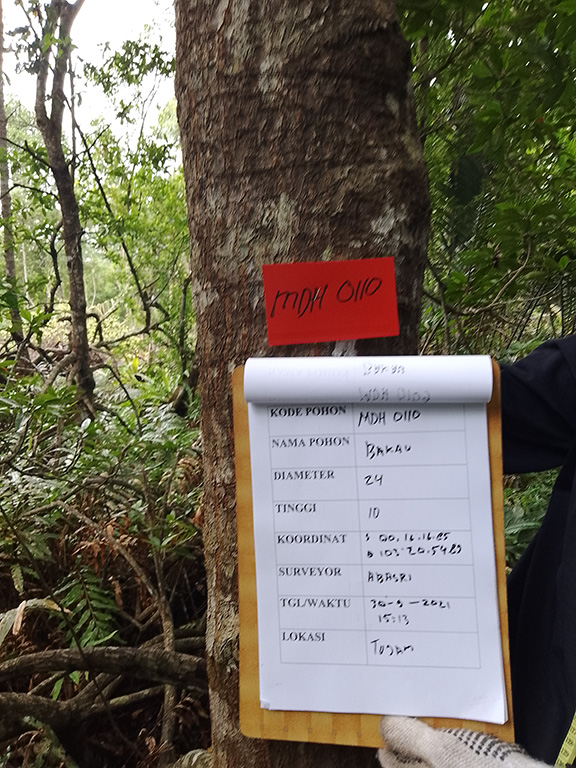 MDH 0110
KODE POHON MDH 0110
NAMA POHON BAKAU
DIAMETER 24
TINGGI 10
KOORDINAT S 00.16.16.85
103°20.5489
SURVEYOR ABASRI
TGL/WAKTU 30-9-2021
15:13
LOKASI